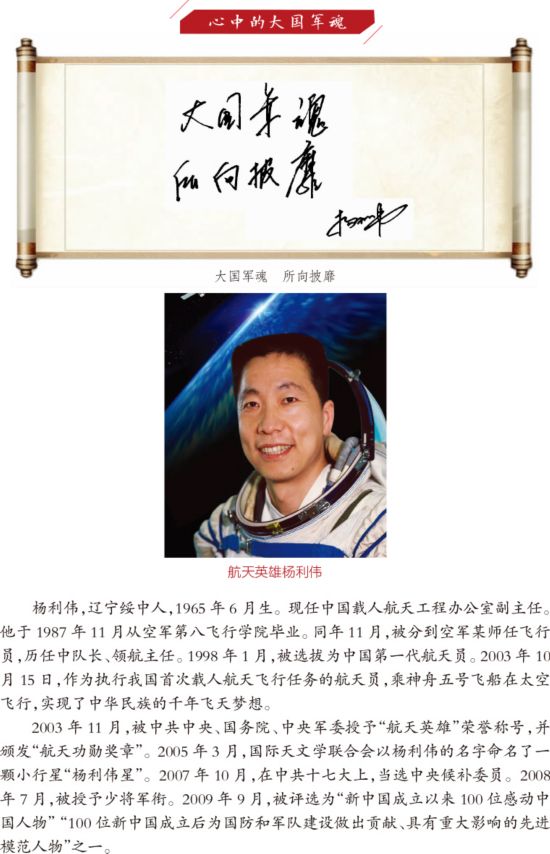 心中的大国军魂
大国军魂
所向披靡
杨利伟
大国军魂 所向披靡
航天英雄杨利伟
杨利伟,辽宁绥中人,1965年6月生。现任中国载人航天工程办公室副主任。
他于1987年11月从空军第八飞行学院毕业。同年11月,被分到空军某师任飞行
员,历任中队长、领航主任。1998年1月,被选拔为中国第一代航天员。2003年10
月15日,作为执行我国首次载人航天飞行任务的航天员,乘神舟五号飞船在太空
飞行,实现了中华民族的千年飞天梦想。
2003年11月,被中共中央、国务院、中央军委授予“航天英雄”荣誉称号,并
颁发“航天功勋奖章”。2005年3月,国际天文学联合会以杨利伟的名字命名了一
颗小行星“杨利伟星”。2007年10月,在中共十七大上,当选中央候补委员。2008
年7月,被授予少将军衔。2009年9月,被评选为“新中国成立以来100位感动中
国人物”“100位新中国成立后为国防和军队建设做出贡献、具有重大影响的先进
模范人物”之一。